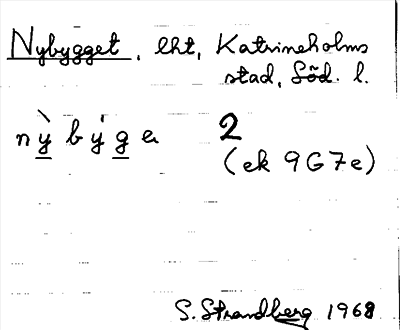 Nybygget, lht, Katrineholms
stad, Söd. l.
nỳbýgeɩ 2
(ek 9G7e)
S. Strandberg 1968